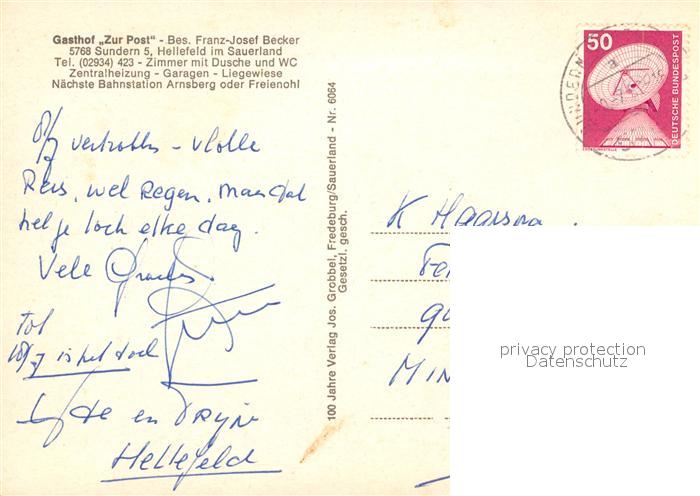 Gasthof „Zur Post" - Bes. Franz-Josef Becker
5768 Sundern 5, Hellefeld im Sauerland
Tel. (02934) 423 - Zimmer mit Dusche und WC
Zentralheizung - Garagen - Liegewiese
Nächste Bahnstation Arnsberg oder Freienohl
8/7 vertrokken - vlotte
Reis, wel Regen, maar dat
heb je toch elke dag.
Vele
Tot
18/7 is het doel
en
Hellefeld
100 Jahre Verlag Jos. Grobbel, Fredeburg/Sauerland - Nr. 6064
Gesetzl. gesch.
50
DEUTSCHE BUNDESPOST
ERDEFUNKSTELLE
K Haarsma
MIN
privacy protection
Datenschutz